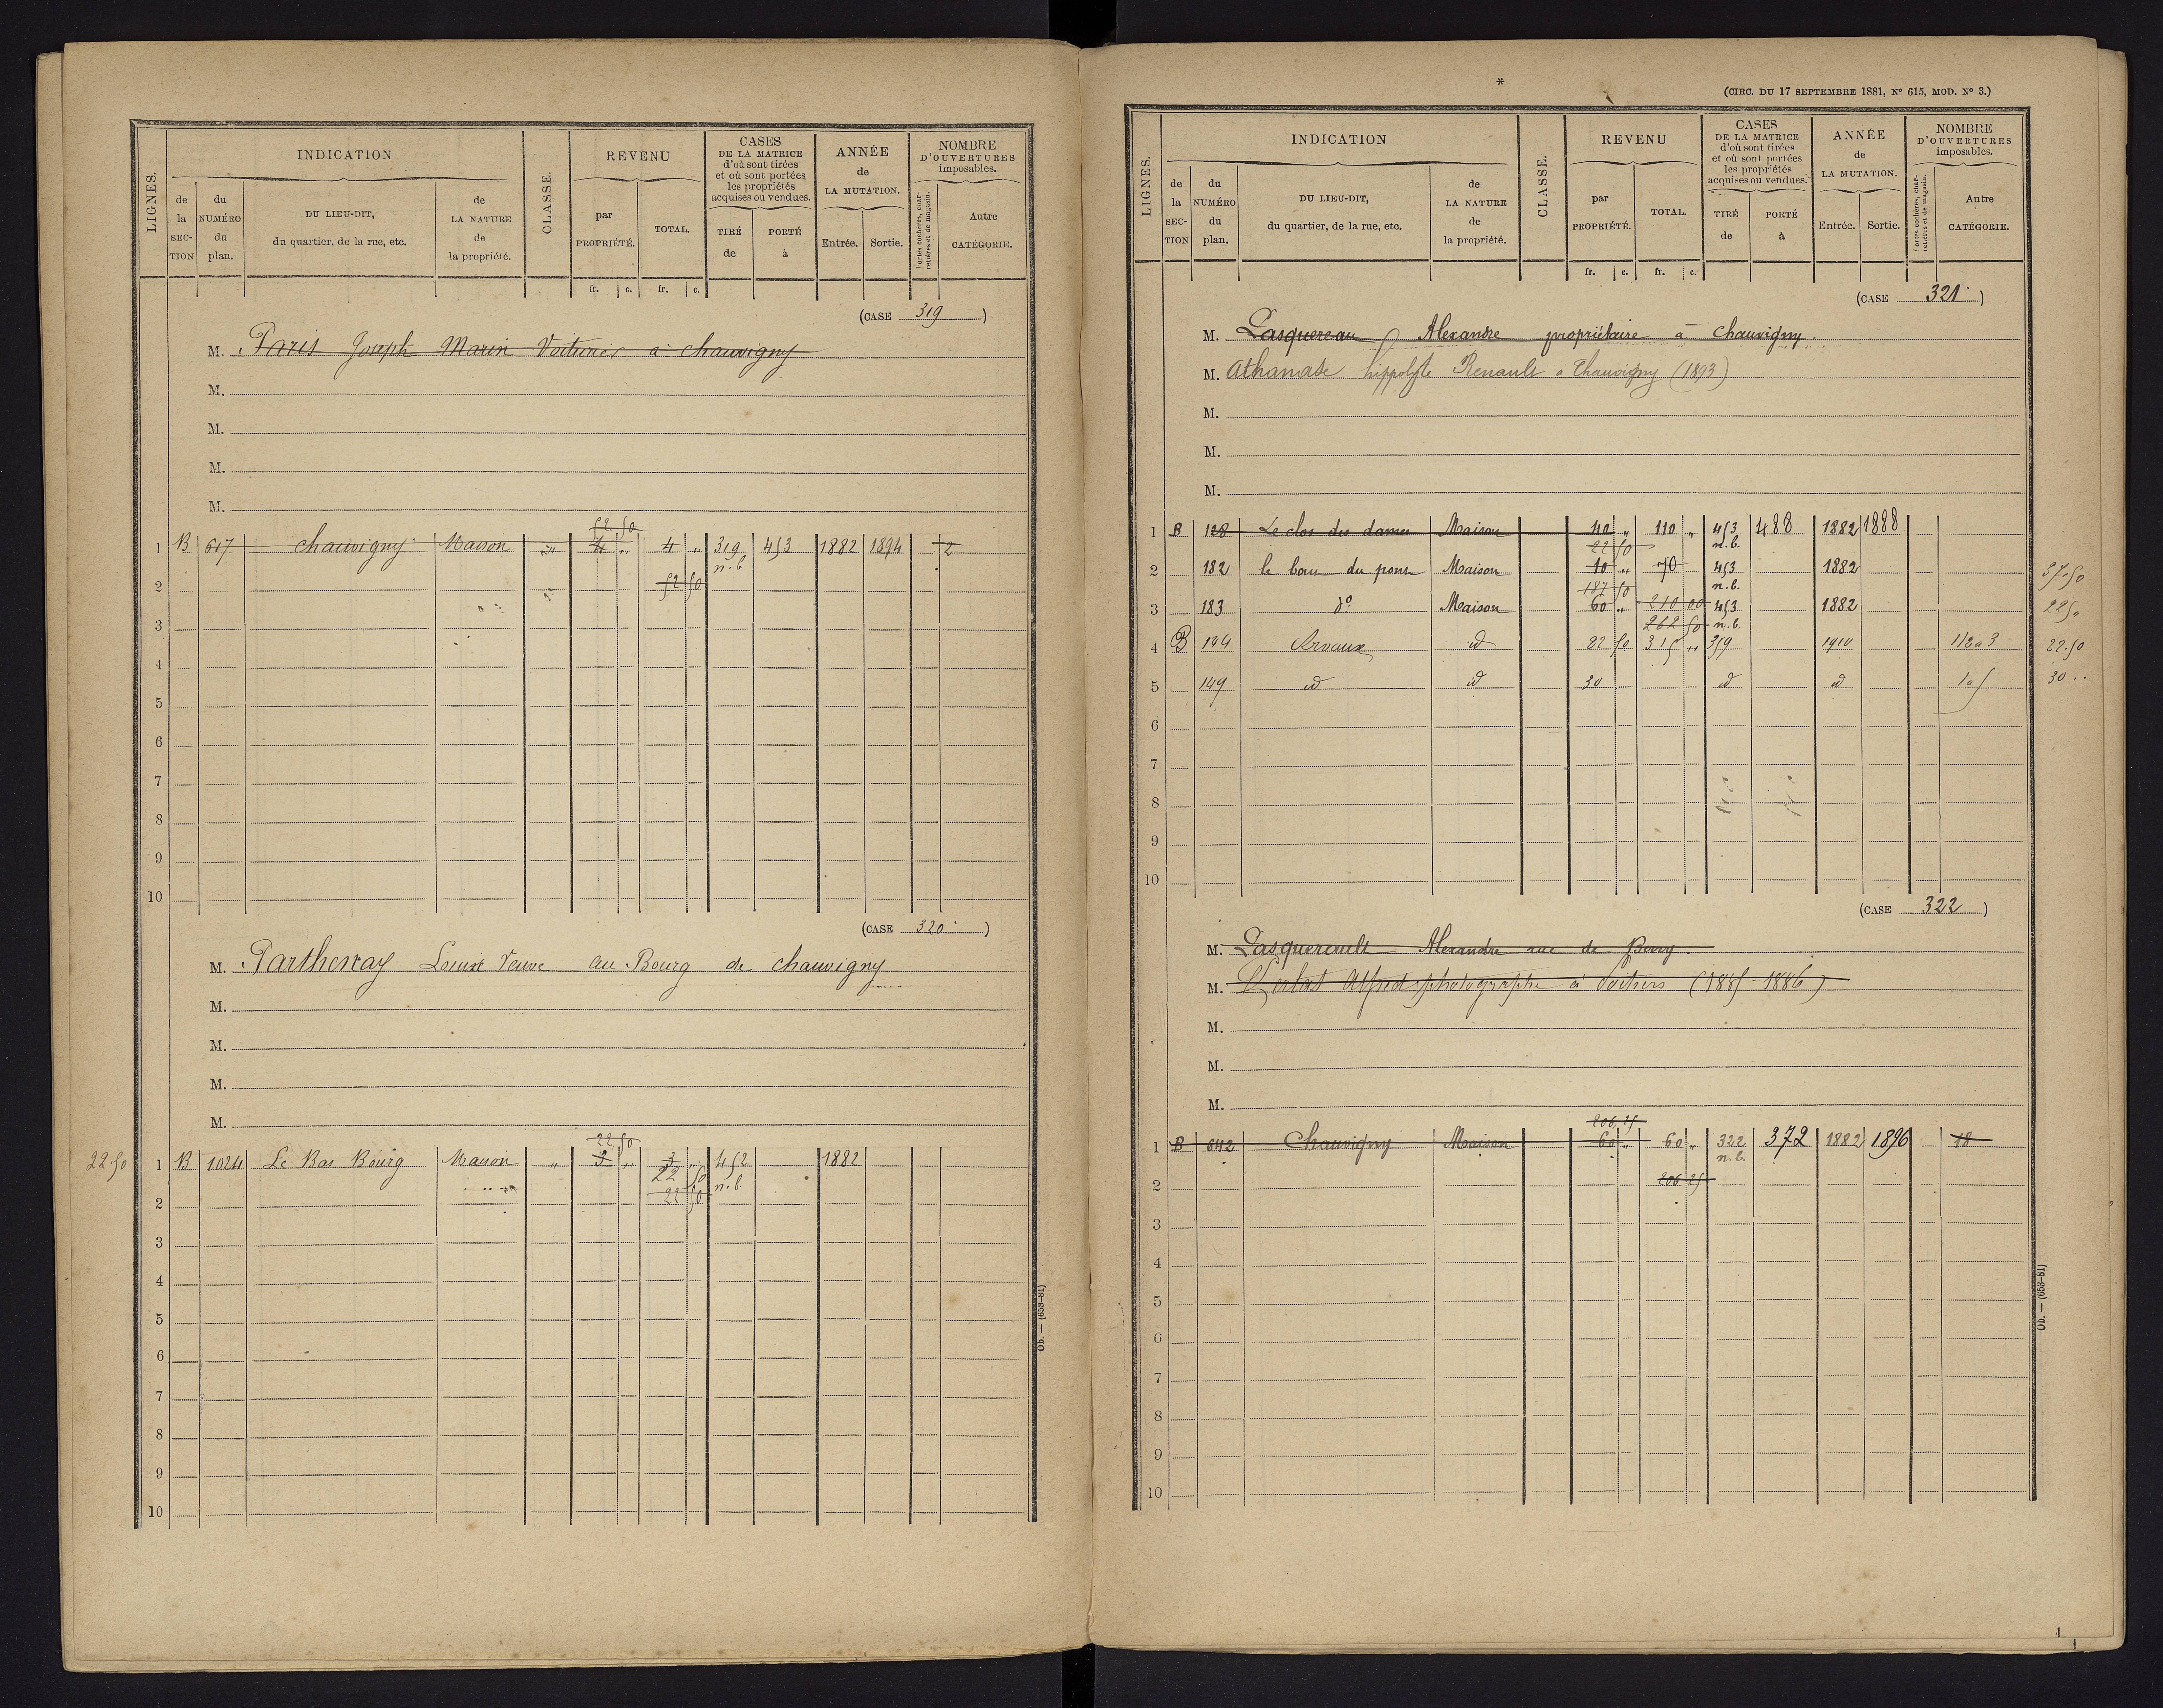 LIGNES.
INDICATION
de la SECTION
du NUMÉRO du plan.
DU LIEU-DIT, du quartier, de la rue, etc.
de LA NATURE de la propriété.
CLASSE.
REVENU
par PROPRIÉTÉ.
TOTAL.
CASES DE LA MATRICE d'où sont tirées et où sont portées les propriétés acquises ou vendues.
TIRÉ de
PORTÉ à
ANNÉE de LA MUTATION.
Entrée. Sortie.
NOMBRE D'OUVERTURES imposables.
Portes cochères, charretières et de magasin.
Autre CATÉGORIE.
fr. c. fr. c.
(CASE 319)
M. Paris Joseph Marin Voiturier à chauvigny
M.
M.
M.
M.
52.50
1 B 617 chauvigny Maison " 4 " 4 " 319 453 1882 1894 2
n.b
2 52 50
3
4
5
6
7
8
9
10
(CASE 320)
M. Parthenay Louise Veuve au Bourg de chauvigny
M.
M.
M.
M.
22 50
22.50 1 B 1024 Le Bas Bourg Maison " 3 " 3 " 452 1882
22 50 n.b.
2 22 50
3
4
5
6
7
8
9
10
Ob. — (653-81)
*
(CIRC. DU 17 SEPTEMBRE 1881, N° 615, MOD. N° 3.)
LIGNES.
INDICATION
de la SECTION
du NUMÉRO du plan.
DU LIEU-DIT, du quartier, de la rue, etc.
de LA NATURE de la propriété.
CLASSE.
REVENU
par PROPRIÉTÉ.
TOTAL.
CASES DE LA MATRICE d'où sont tirées et où sont portées les propriétés acquises ou vendues.
TIRÉ de
PORTÉ à
ANNÉE de LA MUTATION.
Entrée. Sortie.
NOMBRE D'OUVERTURES imposables.
Portes cochères, charretières et de magasin.
Autre CATÉGORIE.
fr. c. fr. c.
(CASE 321)
M. Pasquereau Alexandre propriétaire à chauvigny.
M. Athanase hippolyte Renault à Chauvigny (1893)
M.
M.
M.
1 B 128 Le clos des dames Maison 40 " 110 " 453 488 1882 1888
22 50 n.b.
2 182 le bour du pont Maison 10 " 70 453 1882 37.50
187 50 n.b.
3 183 d° Maison 60 " 210 00 453 1882 225 "
262 50 n.b.
4 B 144 Arvaux id 22 50 315 " 359 1910 1 1 2 a 3 22.50
5 149 id id 30 id id 1 a 5 30 ..
6
7
8
9
10
(CASE 322)
M. Pasquereault Alexandre rue de Berry
M. Alfred photographe à Poitiers (1885-1886)
M.
M.
M.
206,25
1 B 642 Chauvigny Maison 60 " 60 " 322 372 1882 1896 18
n.b.
2 206 25
3
4
5
6
7
8
9
10
Ob. — (653-81)